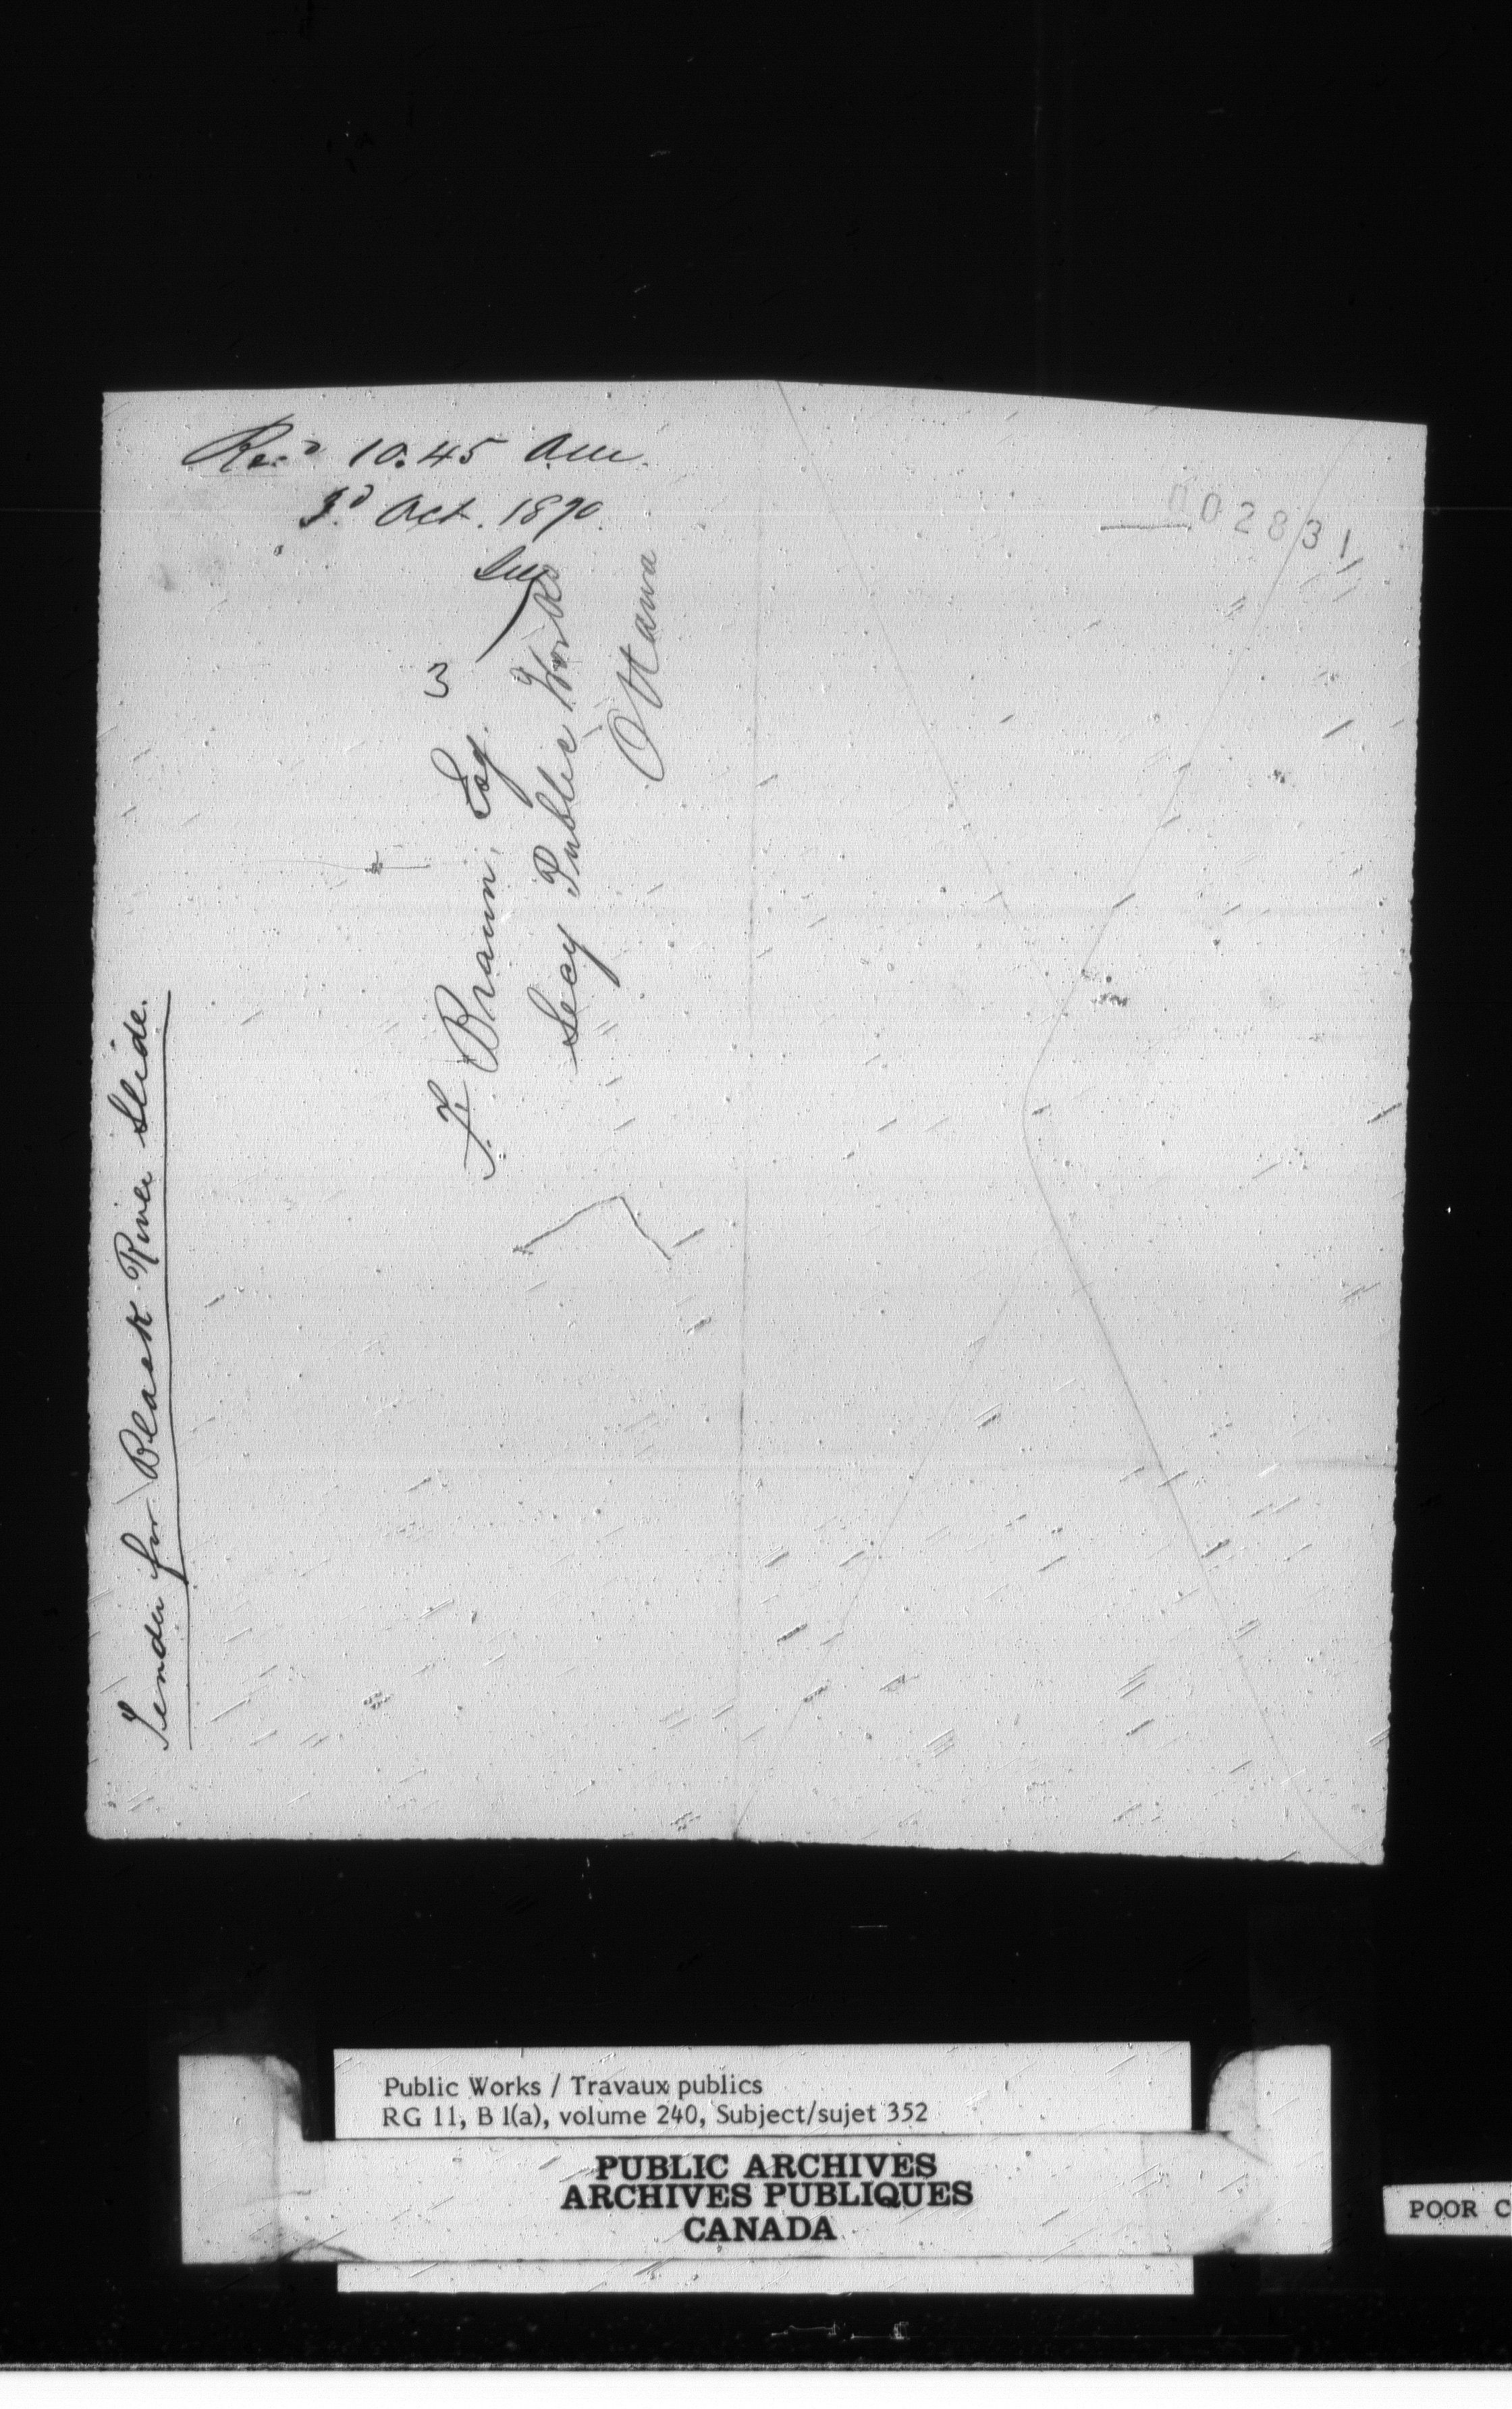 Recd 10.45 am.
3d Oct. 1870.
002831
3
F. Braun, Esq.
Secy Public Works
Ottawa
Tender for Black River Slide.
Public Works / Travaux publics
RG 11, B 1(a), volume 240, Subject/sujet 352
PUBLIC ARCHIVES
ARCHIVES PUBLIQUES
CANADA
POOR C